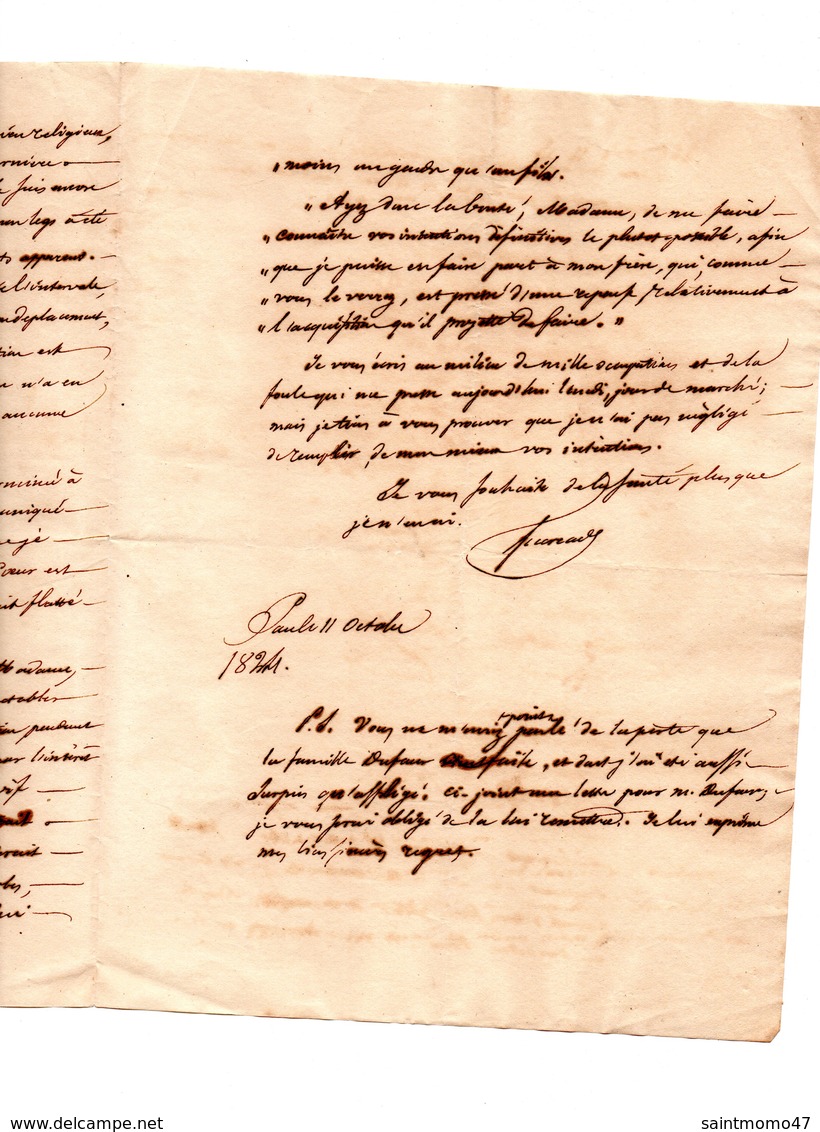 ieu religieux,
rnière
je suis encore
mon legs a été
ts apparent.
l'intervale,
deplacement,
est
n'a eu
aucune
terminé à
uniqué
coeur est
ait flatté
Madame,
notables
pendant
par l'intérêt
" moins un gendre qu'un fils.
" Ayez donc la bonté, Madame, de me faire
" connaitre vos intentions définitives le plutot possible, afin
" que je puisse en faire part à mon frère, qui, comme
" vous le voyez, est pressé d'une réponse relativement à
" l'acquisition qu'il projette de faire. "
Je vous écris au milieu de mille occupations et de la
foule qui me presse aujourd'hui lundi, jour de marché;
mais je tiens à vous prouver que je n'ai pas négligé
de remplir de mon mieux vos intentions.
Je vous souhaite de la santé plus que
je n'en ai.
11 octobre
1824.
P.S. Vous ne m'aviez point parlé de la perte que
la famille Dufaur a faite, et dont j'ai été aussi
surpris qu'affligé. Ci-joint une lettre pour m. Dufaur,
je vous serai obligé de la lui remettre. Je lui exprime
mes bien sincères regrets.
saintmomo47